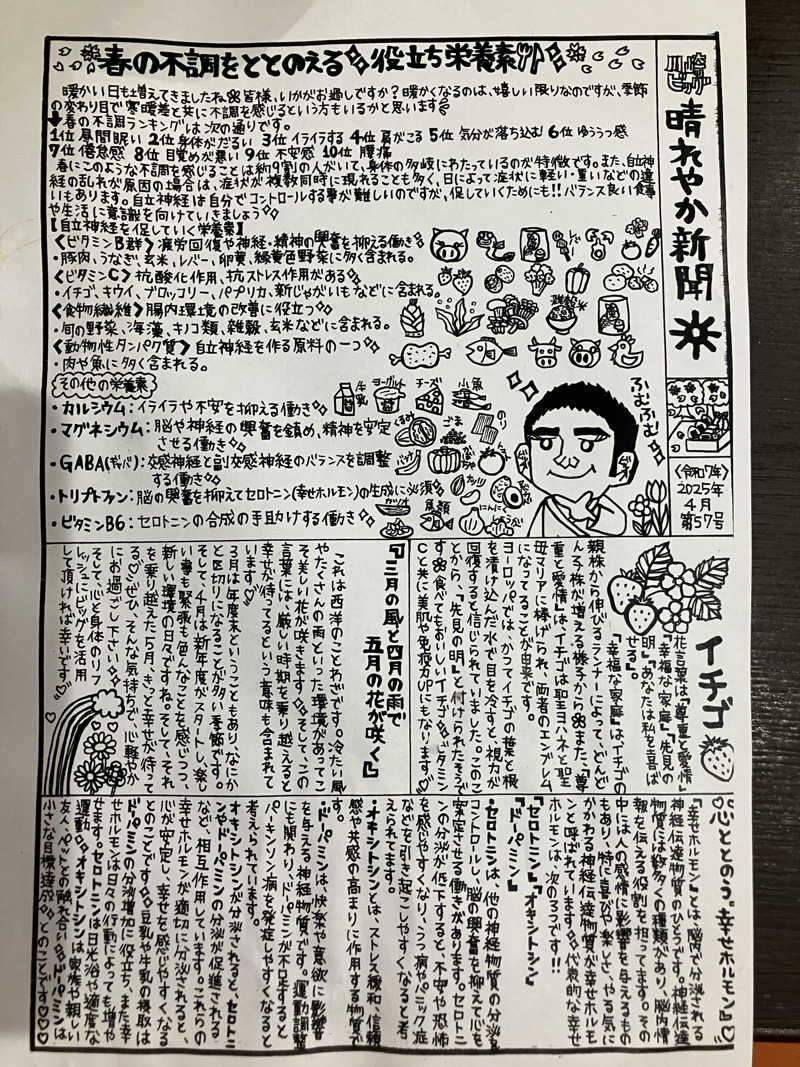 川崎
ビッグ
晴れやか新聞
〈令和7年〉
2025年
4月
第57号
春の不調をととのえる役立ち栄養素
暖かい日も増えてきましたね皆様、いかがお過しですか？暖かくなるのは、嬉しい限りなのですが、季節
の変わり目で寒暖差と共に不調を感じるという方もいるかと思います
↓春の不調ランキングは次の通りです。
1位 昼間眠い 2位 身体がだるい 3位 イライラする 4位 肩がこる 5位 気分が落ち込む 6位 ゆううつ感
7位 倦怠感 8位 目覚めが悪い 9位 不安感 10位 腰痛
春にこのような不調を感じることは約9割の人がいて、身体の多岐にわたっているのが特徴です。また、自律神
経の乱れが原因の場合は、症状が複数同時に現れることも多く、日によって症状に軽い・重いなどの違
いもあります。自律神経は自分でコントロールする事が難しいのですが、促していくためにも!!バランス良い食事
や生活に意識を向けていきましょう
【自律神経を促していく栄養素】
〈ビタミンB群〉疲労回復や神経・精神の興奮を抑える働き
・豚肉、うなぎ、玄米、レバー、卵黄、緑黄色野菜に多く含まれる。
〈ビタミンC〉抗酸化作用、抗ストレス作用がある
・イチゴ、キウイ、ブロッコリー、パプリカ、新じゃがいもなどに含まれる。
〈食物繊維〉腸内環境の改善に役立つ
・旬の野菜、海藻、キノコ類、雑穀、玄米などに含まれる。
〈動物性タンパク質〉自立神経を作る原料の一つ
・肉や魚に多く含まれる。
その他の栄養素
・カルシウム：イライラや不安を抑える働き
牛乳
ヨーグルト
チーズ
小魚
・マグネシウム：脳や神経の興奮を鎮め、精神を安定
させる働き
くるみ
ごま
のり
・GABA(ギャバ)：交感神経と副交感神経のバランスを調整
する働き
かぼちゃ
・トリプトファン：脳の興奮を抑えてセロトニン(幸せホルモン)の生成に必須
・ビタミンB6：セロトニンの合成の手助けする働き
カツオ
鳥類
にんにく
ふむふむ
イチゴ
花言葉は『尊重と愛情』
『幸福な家庭』『先見の
明』『あなたは私を喜ば
せる』。
『幸福な家庭』はイチゴの
親株から伸びるランナーによって、どんど
ん子株が増える様子からまた、『尊
重と愛情』は、イチゴは聖ヨハネと聖
母マリアに捧げられ、両者のエンブレム
になってることが由来です。
ヨーロッパでは、かつてイチゴの葉と根
を漬け込んだ水で目を冷すと、視力が
回復すると信じられていました。このこ
とから、『先見の明』と付けられたそうで
す食べてもおいしいイチゴビタミン
Cと共に美肌や免疫力UPにもなります
『三月の風と四月の雨で
五月の花が咲く』
これは西洋のことわざです。冷たい風
やたくさんの雨といった環境があってこ
そ美しい花が咲きますそして、この
言葉には、厳しい時期を乗り越えると
幸せが待ってるという意味も含まれて
います
3月は年度末ということもあり、なにか
と区切りになることが多い季節です。
そして、4月は新年度がスタートし、楽し
い事も緊張も色んなことを感じつつ、
新しい環境の日々ですね。そして、それ
を乗り越えた5月、きっと幸せが待って
るぜひ、そんな気持ちで、心軽やか
にお過ごし下さい
そして、心と身体のリフ
レッシュにビッグを活用
して頂ければ幸いです
心ととのう。幸せホルモン
『幸せホルモン』とは、脳内で分泌される
神経伝達物質のひとつです。神経伝達
物質には数多くの種類があり、脳内情
報を伝える役割を担ってます。その
中には人の感情に影響を与えるもの
もあり、特に喜びや楽しさ、やる気に
かかわる神経伝達物質が幸せホルモ
ンと呼ばれています代表的な幸せ
ホルモンは、次の3つです!!
『セロトニン』『オキシトシン』
『ドーパミン』
・セロトニンは、他の神経物質の分泌を
コントロールし、脳の興奮を抑えて心を
安定させる働きがあります。セロトニ
ンの分泌が低下すると、不安や恐怖
を感じやすくなり、うつ病やパニック症
などを引き起こしやすくなると考
えられてます。
・オキシトシンとは、ストレス緩和、信頼
感や共感の高まりに作用する物質で
す。
・ドーパミンは、快楽や意欲に影響
を与える神経物質です。運動調整
にも関わり、ドーパミンが不足すると
パーキンソン病を発症しやすくなると
考えられています。
オキシトシンが分泌されると、セロトニ
ンやドーパミンの分泌が促進される
など、相互作用しています。これらの
幸せホルモンが適切に分泌されると、
心が安定し、幸せを感じやすくなる
とのことです豆乳や牛乳の摂取は
ドーパミンの分泌増加に役立ち、また幸
せホルモンは日々の行動によっても増や
せます。セロトニンは日光浴や適度な
運動、オキシトシンは家族や親しい
友人、ペットとの触れ合いドーパミンは
小さな目標達成とのことです